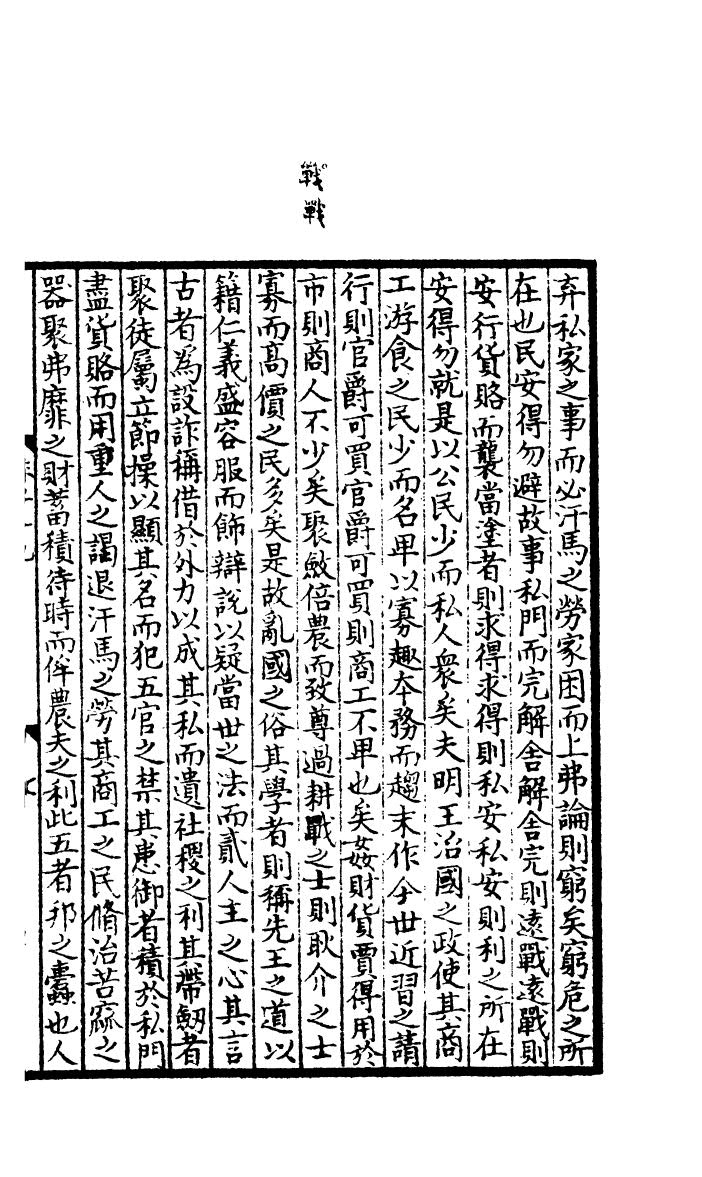 戰
戰
弃私家之事而必汗馬之勞家困而上弗論則窮矣窮危之所
在也民安得勿避故事私門而完解舍解舍完則遠戰遠戰則
安行貨賂而襲當塗者則求得求得則私安私安則利之所在
安得勿就是以公民少而私人衆矣夫明王治國之政使其商
工游食之民少而名卑以寡趣夲務而趨末作今世近習之請
行則官爵可買官爵可買則商工不卑也矣姦財貨賈得用於
市則商人不少矣聚斂倍農而致尊過耕戰之士則耿介之士
寡而高價之民多矣是故亂國之俗其學者則稱先王之道以
籍仁義盛容服而飾辯說以疑當世之法而貳人主之心其言
古者為設詐稱借於外力以成其私而遺社稷之利其帶劒者
聚徒屬立節操以顯其名而犯五官之禁其患御者積於私門
盡貨賂而用重人之謁退汗馬之勞其商工之民脩治苦窳之
器聚弗靡之財蓄積待時而侔農夫之利此五者邦之蠹也人